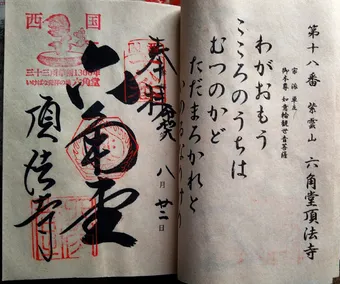 第十八番 紫雲山 六角堂頂法寺
宗派 単立
御本尊 如意輪観世音菩薩
わがおもう
こころのうちは
むつのかど
ただまろかれと
西国
三十三所草創1300年
いけばな発祥の地
奉拝
八月廿二日
六角堂
頂法寺